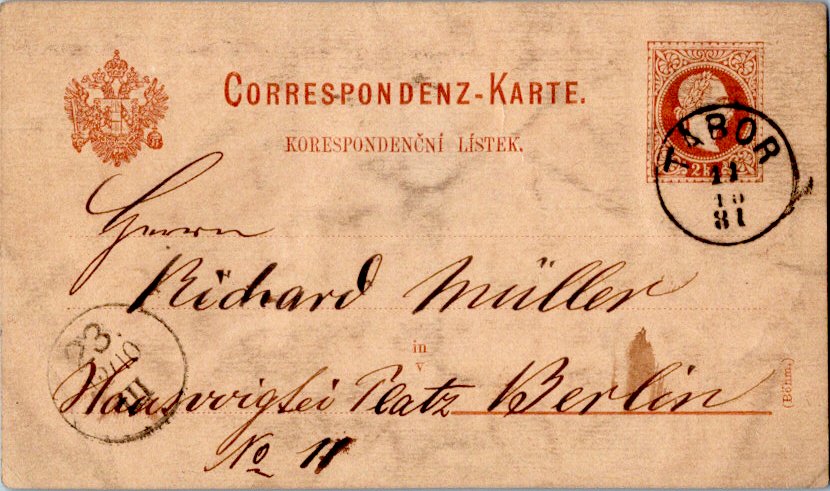 CORRESPONDENZ-KARTE.
KORESPONDENČNÍ LÍSTEK.
2 k
TABOR
11
10
81
Herrn
Richard Müller
in
v
Platz Berlin
No 11
(Böhm.)
23.
III